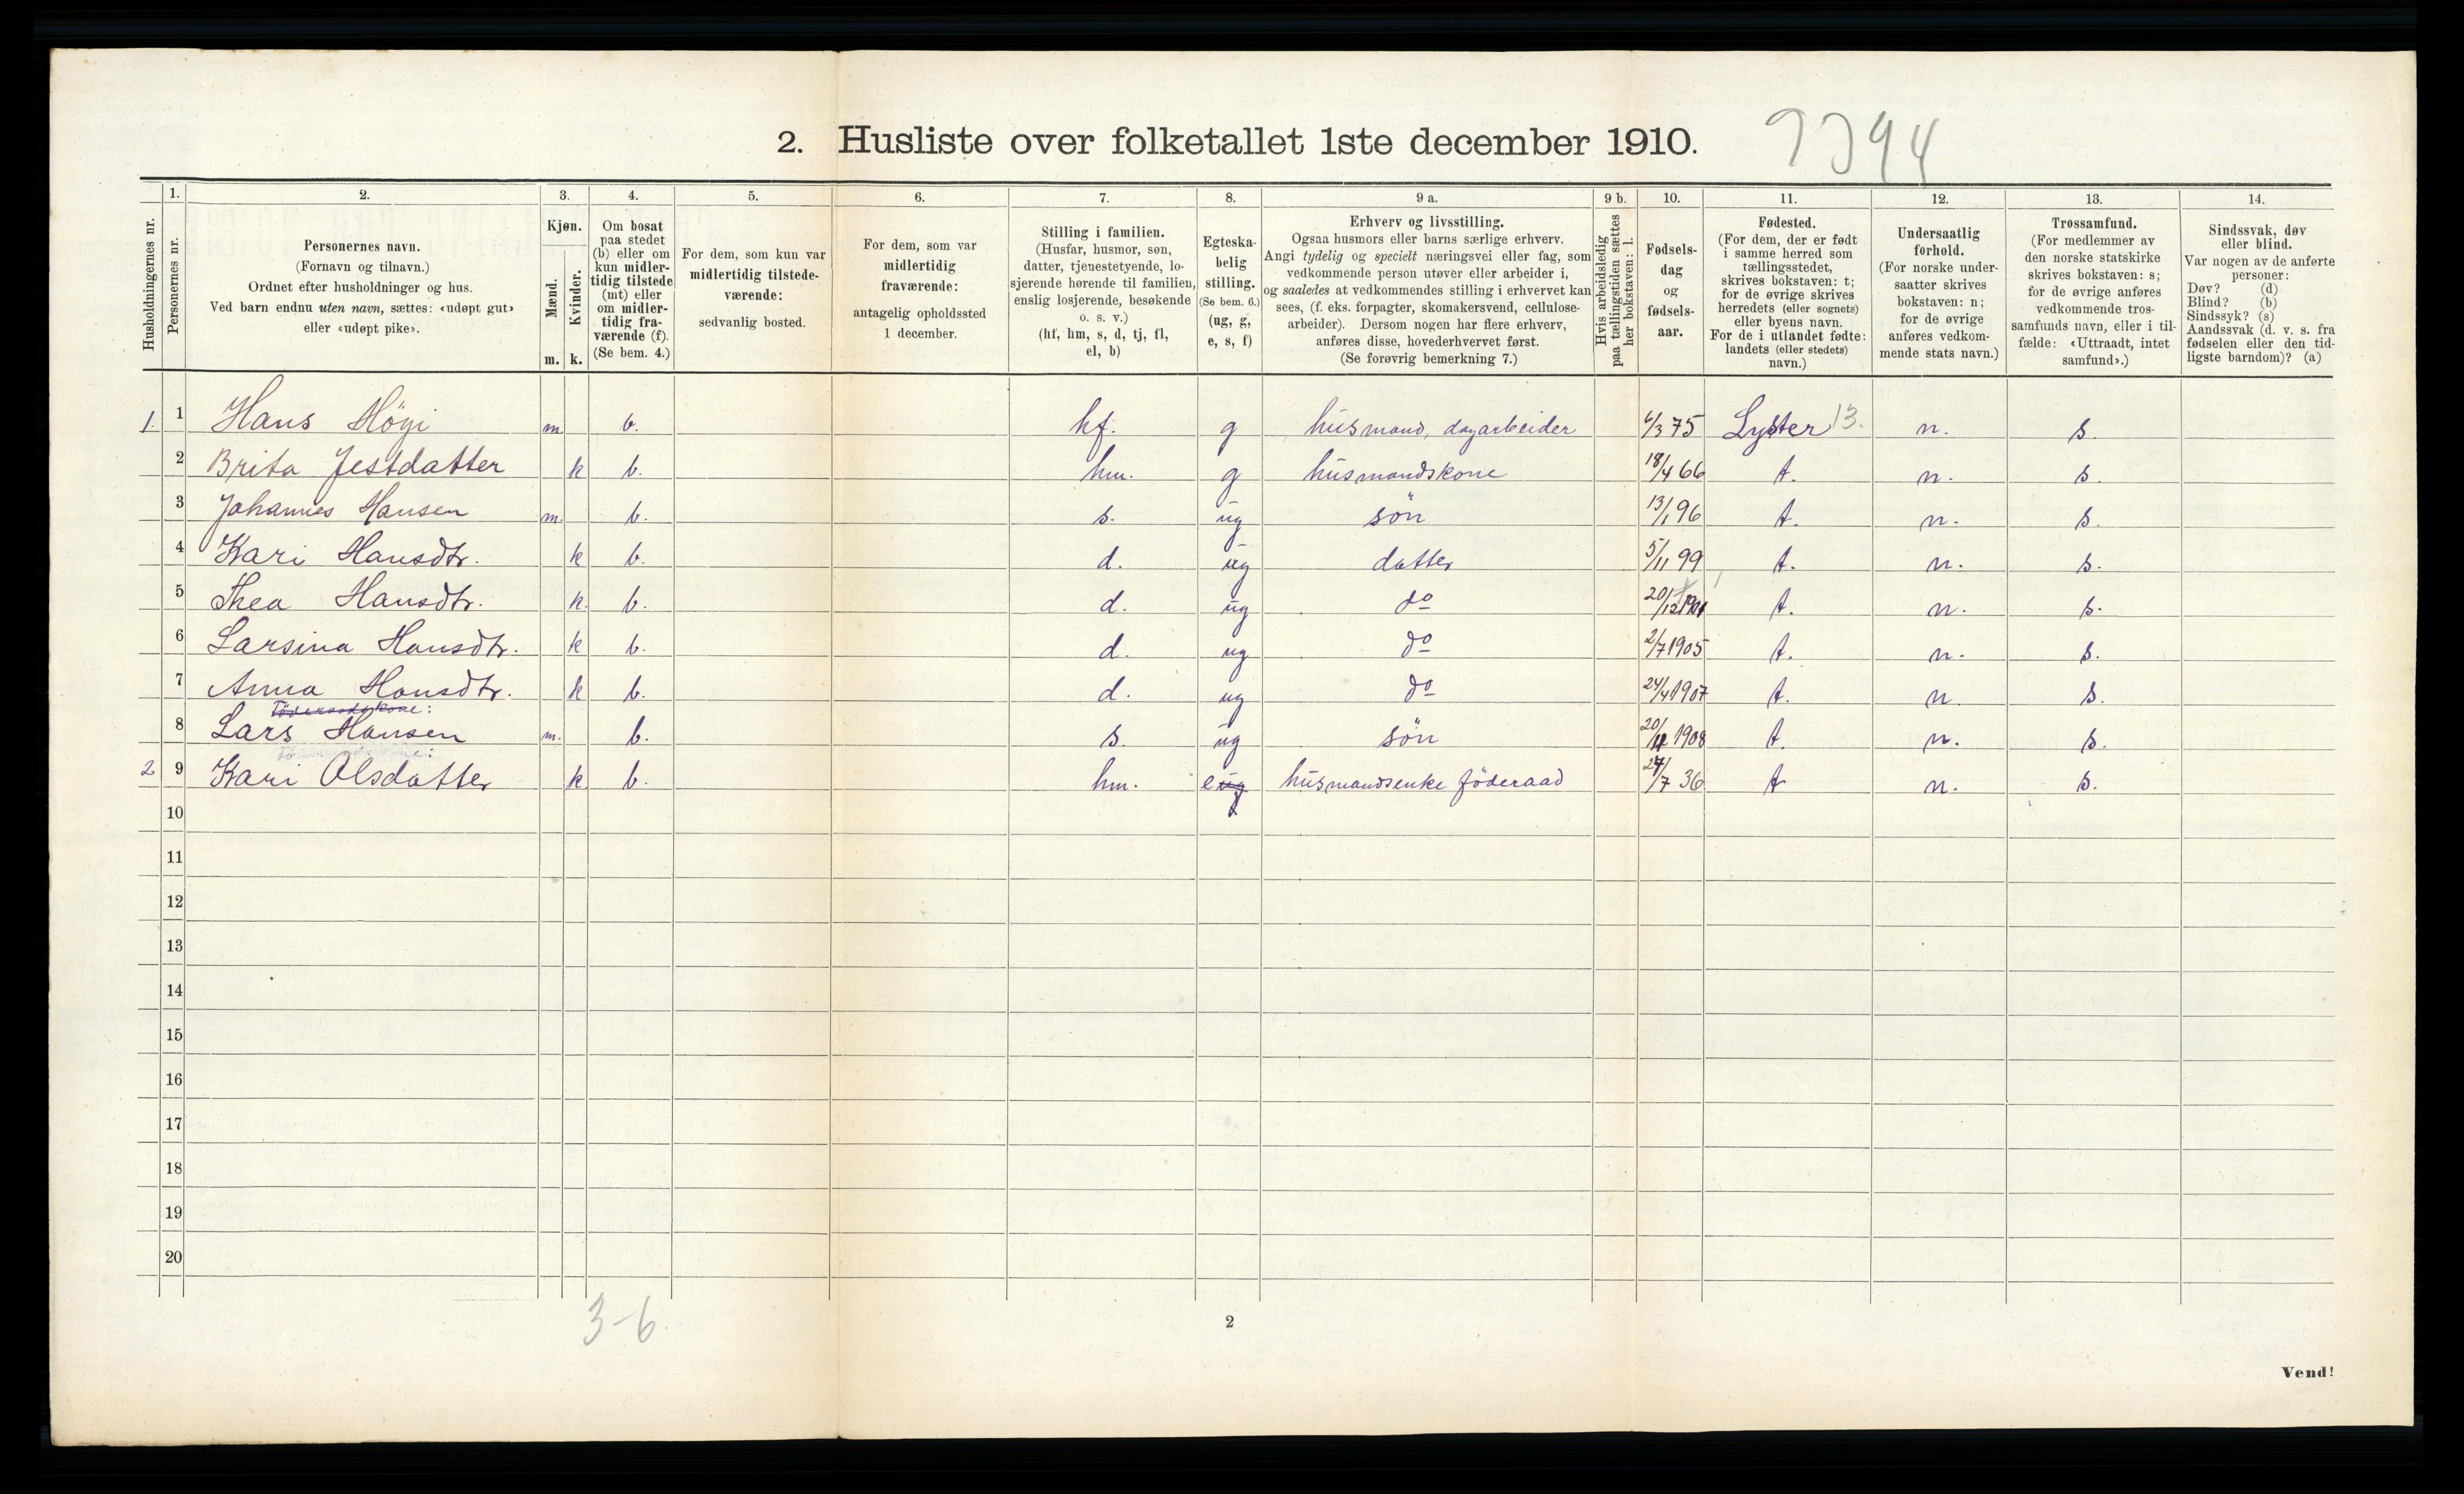 2. Husliste over folketallet 1ste december 1910.
Husholdningernes nr.
1. Personernes nr.
2. Personernes navn.
(Fornavn og tilnavn.)
Ordnet efter husholdninger og hus.
Ved barn endnu uten navn, sættes: «udøpt gut»
eller «udøpt pike».
3. Kjøn.
Mænd. m.
Kvinder. k.
4. Om bosat
paa stedet
(b) eller om
kun midler-
tidig tilstede
(mt) eller
om midler-
tidig fra-
værende (f).
(Se bem. 4.)
5. For dem, som kun var
midlertidig tilstede-
værende:
sedvanlig bosted.
6. For dem, som var
midlertidig
fraværende:
antagelig opholdssted
1 december.
7. Stilling i familien.
(Husfar, husmor, søn,
datter, tjenestetyende, lo-
sjerende hørende til familien,
enslig losjerende, besøkende
o. s. v.)
(hf, hm, s, d, tj, fl,
el, b)
8. Egteska-
belig
stilling.
(Se bem. 6.)
(ug, g,
e, s, f)
9 a. Erhverv og livsstilling.
Ogsaa husmors eller barns særlige erhverv.
Angi tydelig og specielt næringsvei eller fag, som
vedkommende person utøver eller arbeider i,
og saaledes at vedkommendes stilling i erhvervet kan
sees, (f. eks. forpagter, skomakersvend, cellulose-
arbeider). Dersom nogen har flere erhverv,
anføres disse, hovederhvervet først.
(Se forøvrig bemerkning 7.)
9 b. Hvis arbeidsledig
paa tællingstiden sættes
her bokstaven: l.
10. Fødsels-
dag
og
fødsels-
aar.
11. Fødested.
(For dem, der er født
i samme herred som
tællingsstedet,
skrives bokstaven: t;
for de øvrige skrives
herredets (eller sognets)
eller byens navn.
For de i utlandet fødte:
landets (eller stedets)
navn.)
12. Undersaatlig
forhold.
(For norske under-
saatter skrives
bokstaven: n;
for de øvrige
anføres vedkom-
mende stats navn.)
13. Trossamfund.
(For medlemmer av
den norske statskirke
skrives bokstaven: s;
for de øvrige anføres
vedkommende tros-
samfunds navn, eller i til-
fælde: «Uttraadt, intet
samfund».)
14. Sindssvak, døv
eller blind.
Var nogen av de anførte
personer:
Døv? (d)
Blind? (b)
Sindssyk? (s)
Aandssvak (d. v. s. fra
fødselen eller den tid-
ligste barndom)? (a)
1. 1 Hans Höyi m. b. hf. g husmand, dagarbeider 6/3 75 Lyster 13. n. s.
2 Brita Jestdatter k b. hm. g husmandskone 18/4 66 t. n. s.
3 Johannes Hansen m. b. s. ug sön 13/1 96 t. n. s.
4 Kari Hansdtr. k b. d. ug datter 5/11 99 t. n. s.
5 Thea Hansdtr. k. b. d. ug do 20/12 1901 t. n. s.
6 Larsina Hansdtr. k b. d. ug do 2/7 1905 t. n. s.
7 Anna Hansdtr. k b. d. ug do 24/4 1907 t. n. s.
Föderaadskone:
8 Lars Hansen m. b. s. ug sön 20/ 1908 t. n. s.
2 9 Kari Olsdatter k. b. hm. e ug husmandsenke föderaad 24/7 36 t n. s.
10
11
12
13
14
15
16
17
18
19
20
3-6
2
Vend!